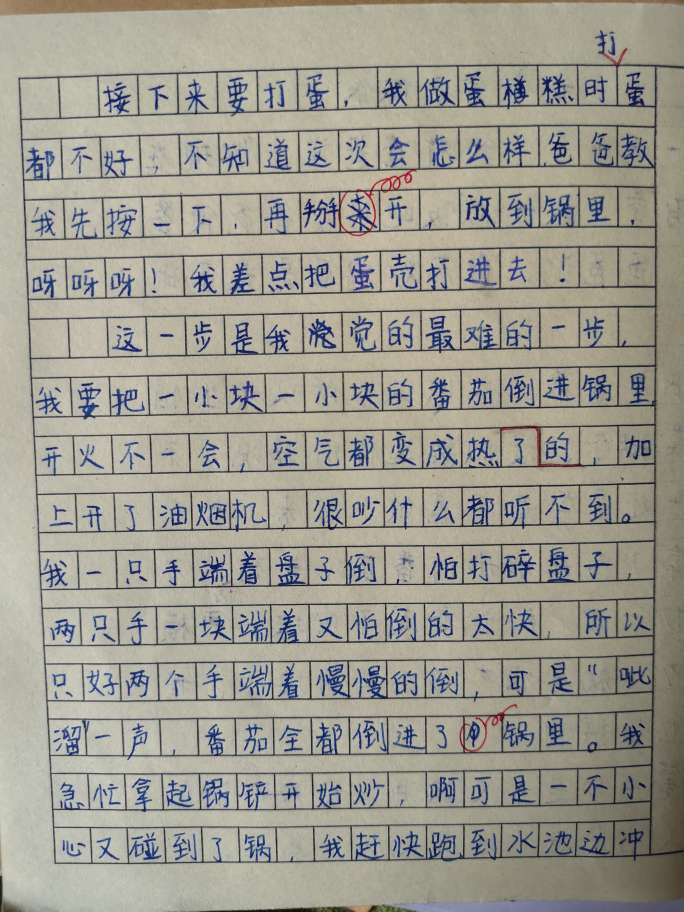 打
接下来要打蛋，我做蛋糕时蛋
都不好，不知道这次会怎么样，爸爸教
我先按一下，再掰开，放到锅里，
呀呀呀！我差点把蛋壳打进去！
这一步是我觉的最难的一步，
我要把一小块一小块的番茄倒进锅里
开火不一会，空气都变成热了的，加
上开了油烟机，很吵什么都听不到。
我一只手端着盘子倒，怕打碎盘子，
两只手一块端着又怕倒的太快，所以
只好两个手端着慢慢的倒，可是“呲
溜”一声，番茄全都倒进了锅里。我
急忙拿起锅铲开始炒，啊可是一不小
心又碰到了锅，我赶快跑到水池边冲